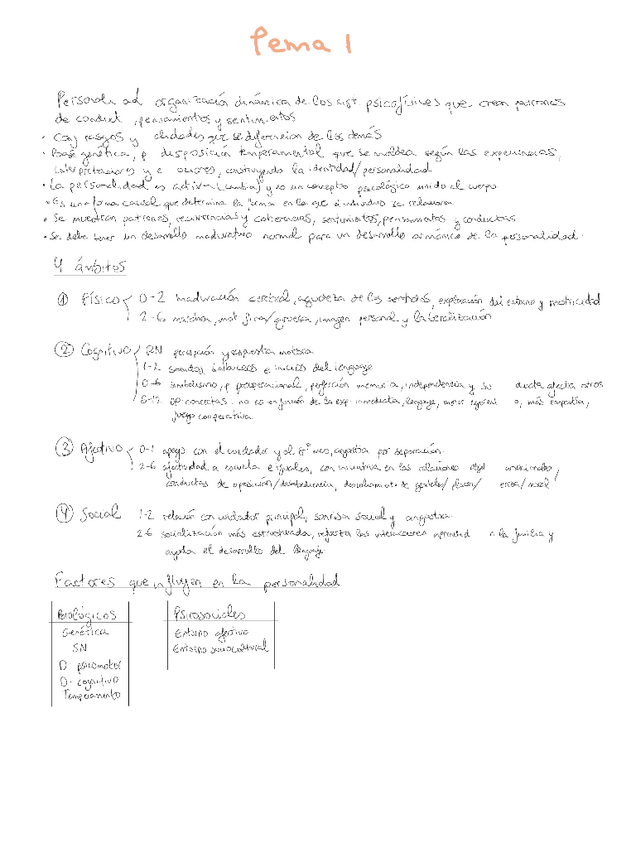 Tema 1
Personali ad organización dinámica de los sist psicofísicos que crean patrones
de conduct , pensamientos y sentimientos
· Con rasgos y que se diferencian de los demás
· Base genética, p disposición temperamental que se moldea según las experiencias,
interpretaciones y a ciones, construyendo la identidad/personalidad
· La personalidad es activa (cambia) y no un concepto psicológico unido al cuerpo
· Es una forma causal que determina la forma en la que el individuo se relaciona
· Se muestran patrones, recurrencias y coherencias, sentimientos, pensamientos y conductas
· Se debe tener un desarrollo madurativo normal para un desarrollo armónico de la personalidad.
4 ámbitos
① Físico 0-2 maduración cerebral, agudeza de los sentidos, exploración del entorno y motricidad
2-6 mot fina/gruesa, imagen personal y lateralización
② Cognitivo RN percepción y respuesta motora
1-2 sonidos, balbuceos e inicios del lenguaje
0-6 simbolismo, p preoperacional, perfección memoria, independencia y su ducta afecta otros
6-12 op concretas no en función de su exp inmediata, lenguaje, mayor o, más empatía,
juego cooperativo.
③ Afectivo 0-1 apego con el cuidador y al 8º mes, angustia por separación.
2-6 afectividad a escuela e iguales, en las relaciones emocionales/
conductas de oposición/desobediencia,
④ Social 1-2 relación con cuidador principal, sonrisa social y angustia
2-6 socialización más estructurada, las interacciones aprend n la familia y
ayuda el desarrollo del lenguaje
Factores que influyen en la personalidad
Biológicos
Genética
SN
D. psicomotor
D. cognitivo
Temperamento
Psicosociales
Entorno afectivo
Entorno sociocultural